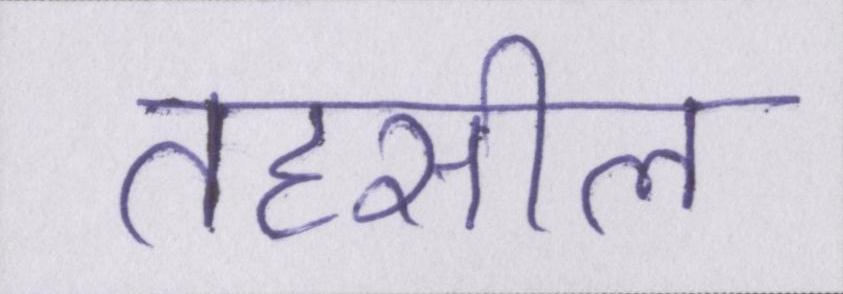 तहसील